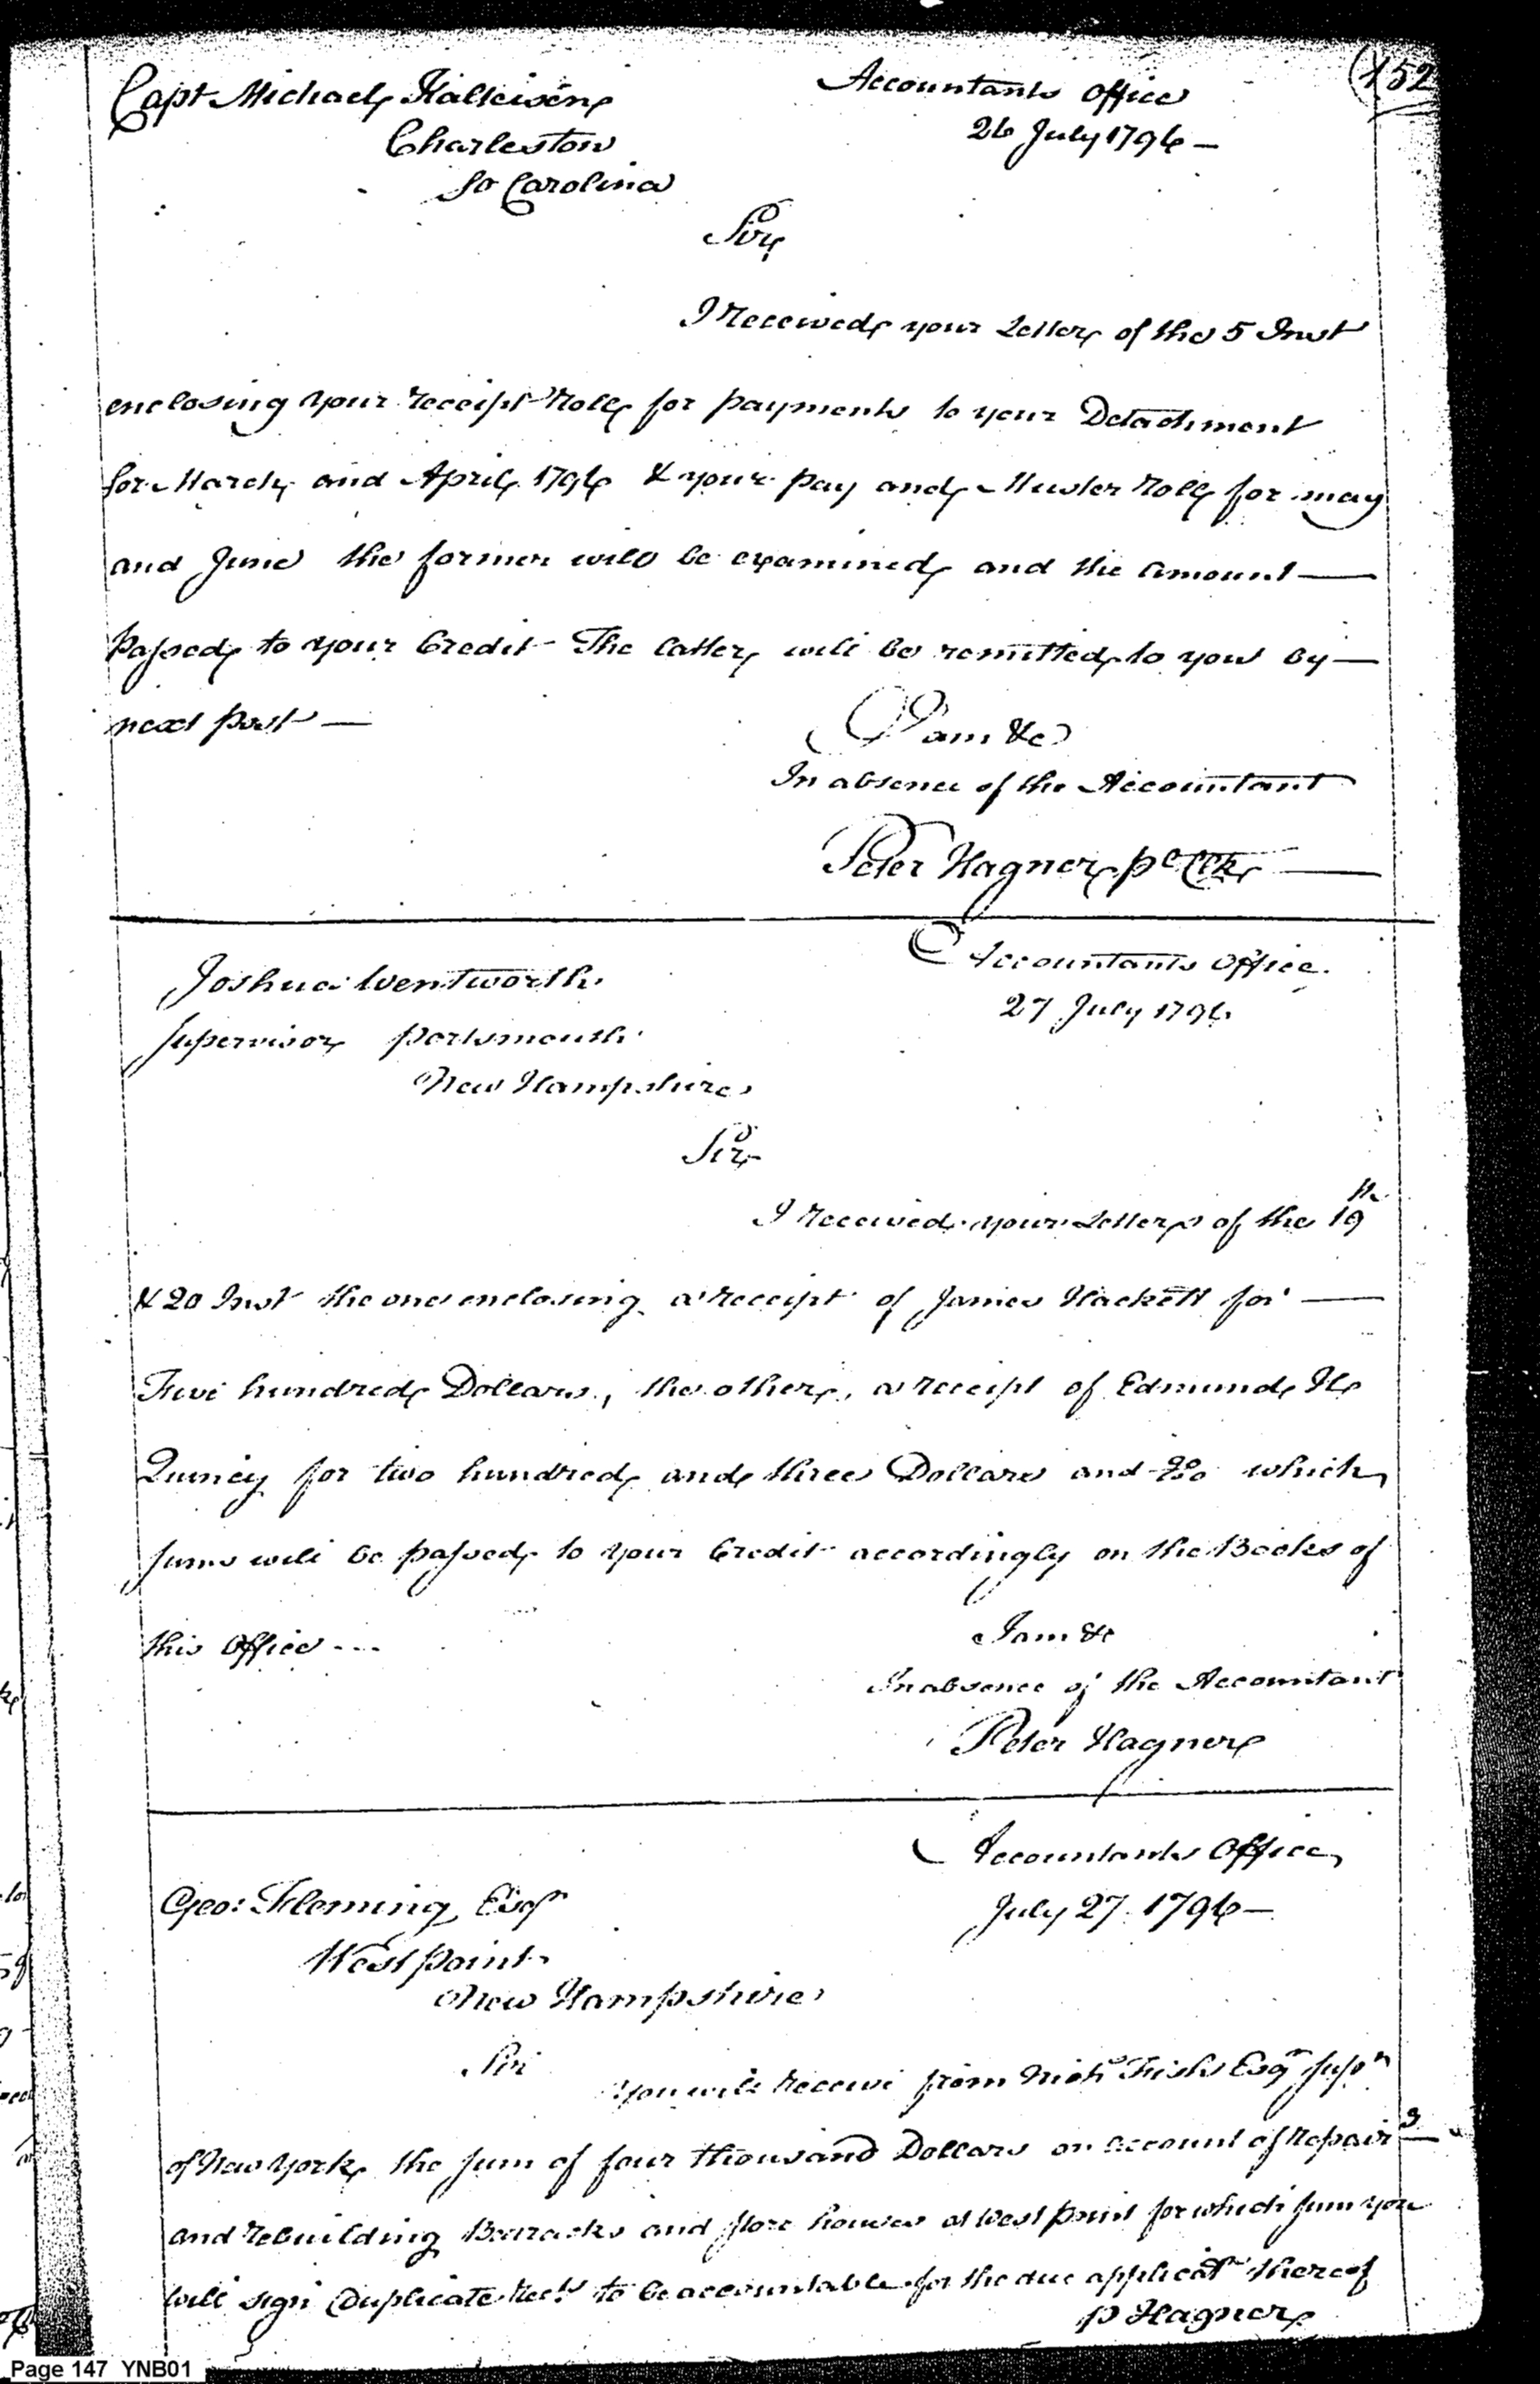 (152
Capt Michael Kalteisen
Accountants Office
Charleston
26 July 1796 —
So Carolina
Sir
I Received your Letter of the 5 Inst
enclosing your receipt Roll for payments to your Detachment
for March and April 1796 & your pay and Muster Roll for may
and June the former will be examined and the Amount —
Passed to your Credit - The latter will be remitted to you by —
next post —
I am &c
In absence of the Accountant
Peter Hagner p Clk —
Accountants Office
Joshua Wentworth
27 July 1796
Supervisor portsmouth
New Hampshire
Sir
I Received your Letters of the 19th
& 20 Inst the one enclosing a receipt of James Hackett for —
Five hundred Dollars, the other, a receipt of Edmund H
Quincy for two hundred and three Dollars and which
sums will be passed to your Credit accordingly on the Books of
this Office ---
I am &c
In absence of the Accountant
Peter Hagner
Accountants Office
Geo: Fleming Esqr
July 27. 1796 —
West point
New Hampshire
Sir
You will Receive from Nichs Fish Esqr Supr
of New York the sum of four thousand Dollars on account of Repairs
and rebuilding Barracks and store houses at West point for which sum you
will sign Duplicate Rects to be accountable for the due applicatn thereof
P Hagner
Page 147 YNB01